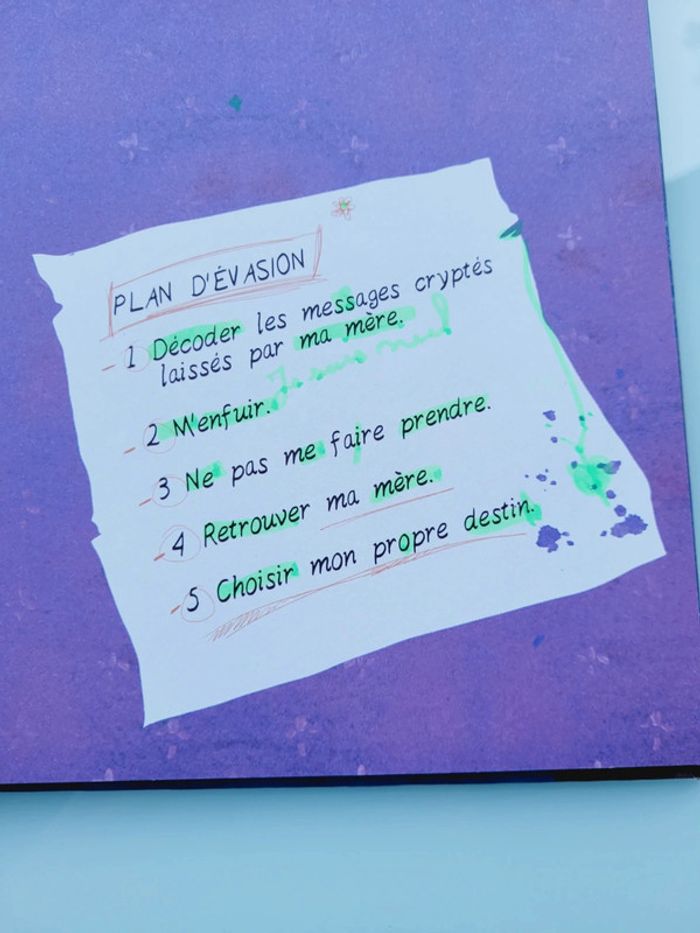 PLAN D'ÉVASION
1 Décoder les messages cryptés
laissés par ma mère.
2 M'enfuir.
3 Ne pas me faire prendre.
4 Retrouver ma mère.
5 Choisir mon propre destin.